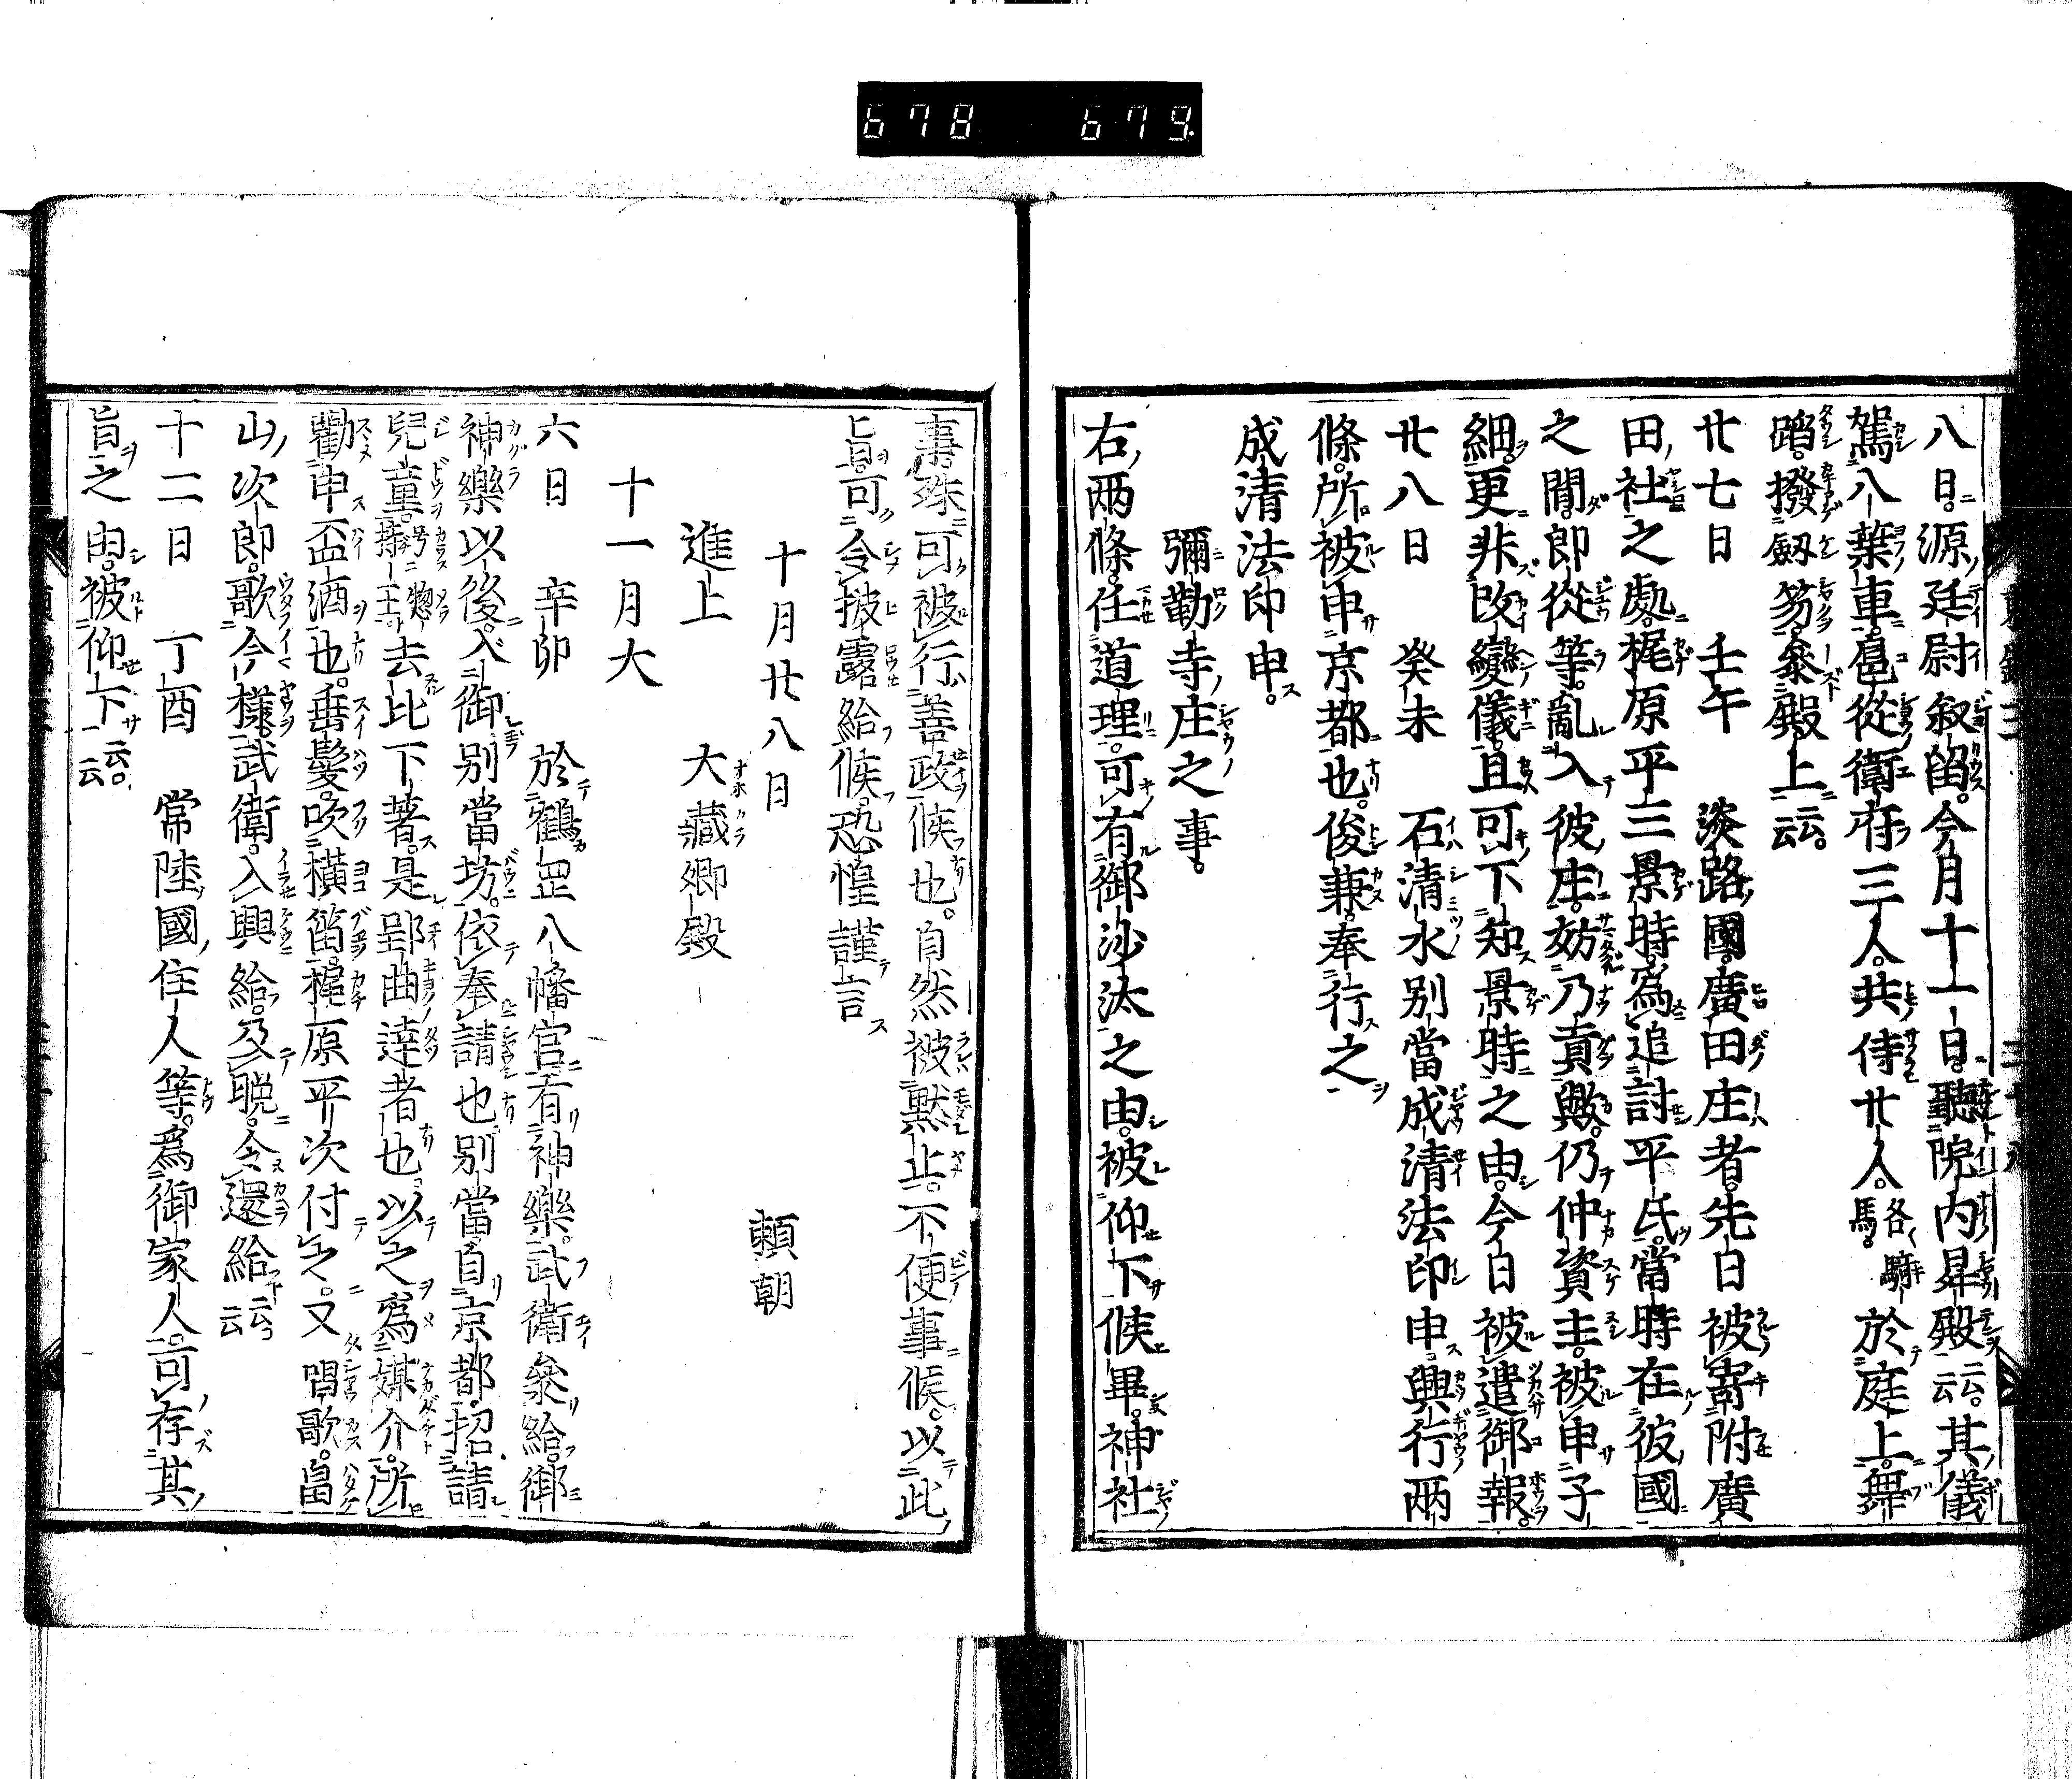 678 679
八日。源廷尉叙留。今月十一日。聽院内昇殿云云。其儀
駕八葉車。扈從衛府三人。共侍廿人。各騎馬。於庭上舞
蹈。撥劔笏。參殿上云云。
廿七日 壬午 淡路國。廣田庄者。先日被寄附廣
田社之處。梶原平三景時。爲追討平氏。當時在彼國
之間。郎從等。亂入彼庄。妨乃貢歟。仍仲資王。被申子
細。更非改變儀。且可下知景時之由。今日被遣御報。
廿八日 癸未 石清水別當成清法印申興行兩
條。所被申京都也。俊兼。奉行之
成清法印申。
彌勒寺庄之事。
右兩條。任道理。可有御沙汰之由。被仰下候畢。神社
事。殊可被行善政候也。自然被默止。不便事候。以此
旨。可令披露給候。恐惶謹上言
十月廿八日 頼朝
進上 大藏卿殿
十一月大
六日 辛卯 於鶴罡八幡宮有神樂。武衛參給。御
神樂以後。入御別當坊。依奉請也別當。自京都。招請
兒童。号惣持王去比下著。是郢曲達者也。以之爲媒介。所
勸申盃酒也。垂髮。吹横笛。梶原平次付之。又唱歌。畠
山次郎。歌今樣。武衛。入興給。及晩。令還給云云
十二日 丁酉 常陸國住人等。爲御家人。可存其
旨之由。被仰下云云。